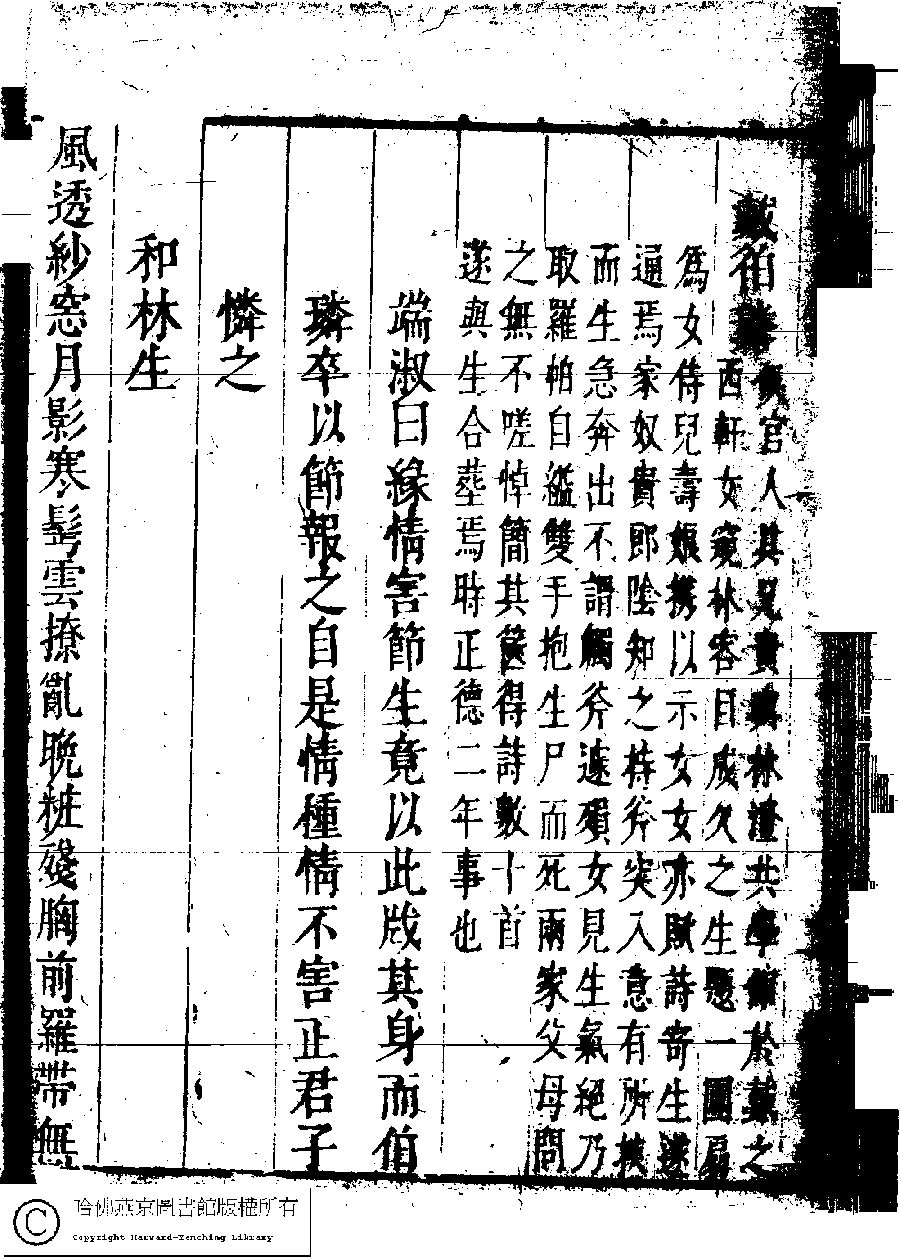 戴伯璘
侯官人其兄貴與林澄共學館於戴之
西軒女窺林容目成久之生題一團扇
為女侍兒壽娘携以示女女亦賦詩寄生遂
通焉家奴貴郎陰知之持斧突入意有所挾
而生急奔出不謂觸斧遂殞女見生氣絕乃
取羅帕自縊雙手抱生尸而死兩家父母問
之無不嗟悼簡其篋得詩數十首
遂與生合塟焉時正德二年事也
端淑曰緣情害節生竟以此戕其身而伯
璘卒以節報之自是情種情不害正君子
憐之
和林生
風透紗窓月影寒鬂雲撩亂晚粧殘胸前羅帶無
哈佛燕京圖書館版權所有
Copyright Harvard-Yenching Library